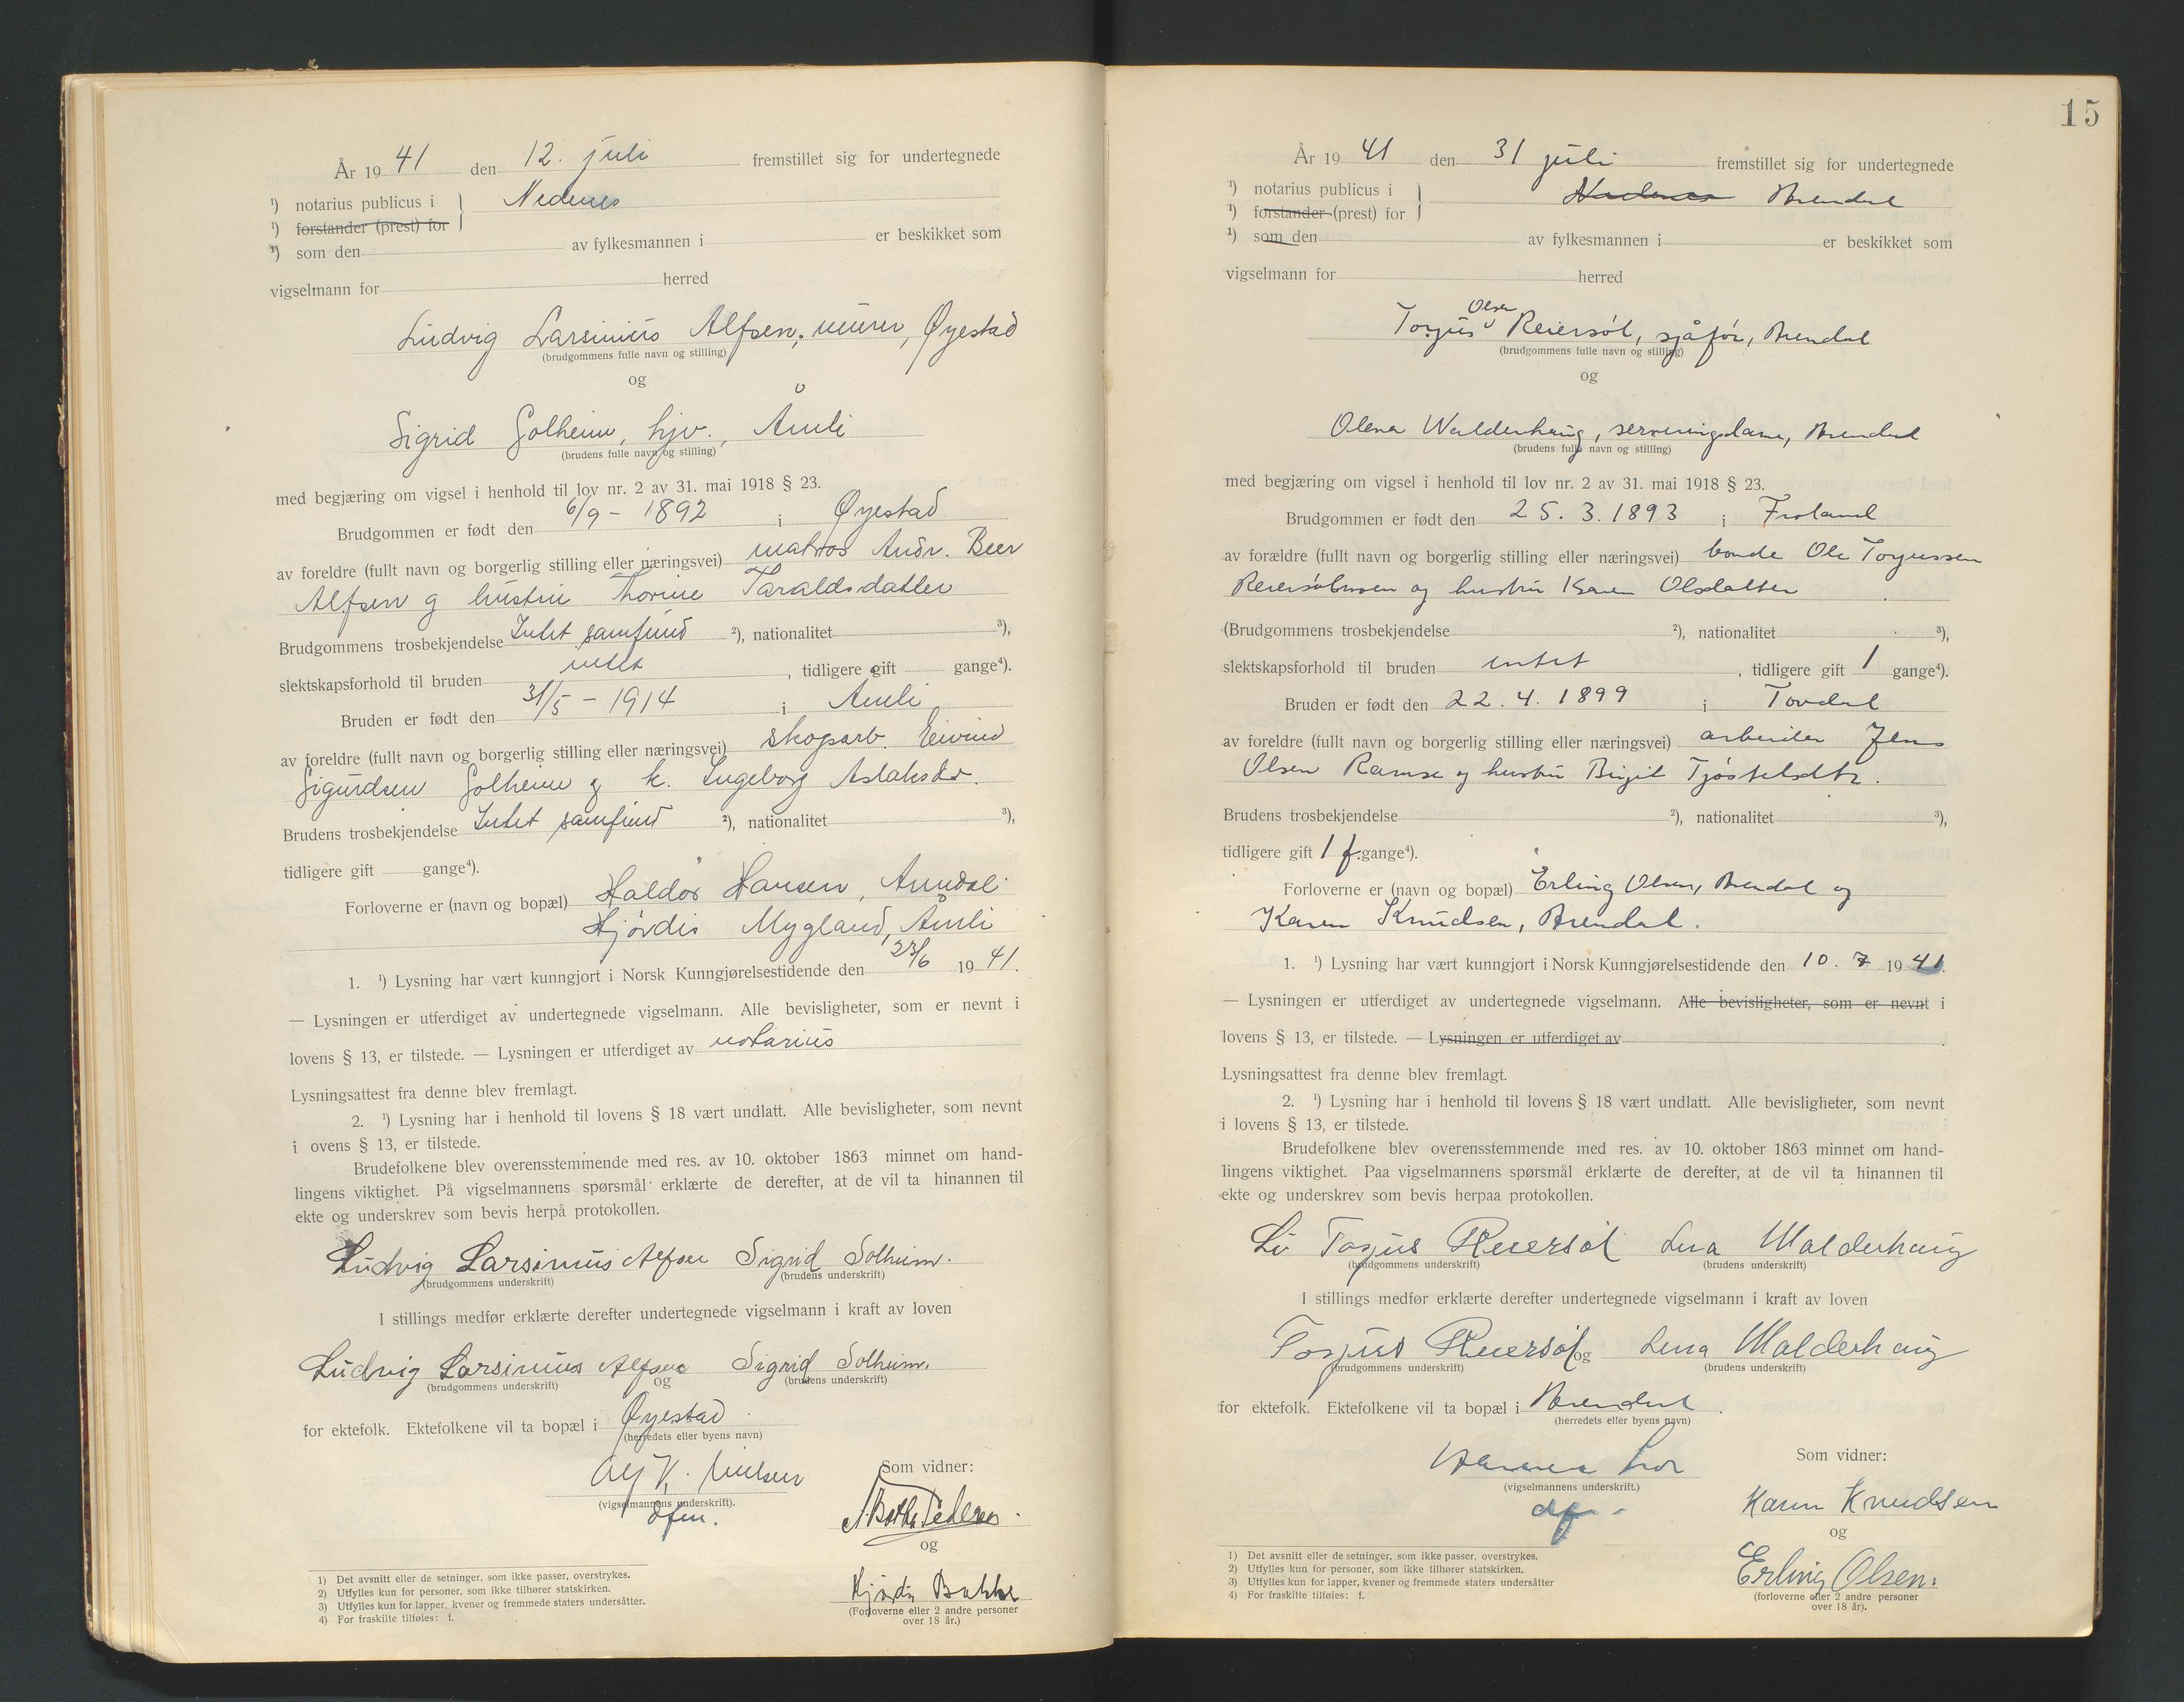 År 19 41 den 12. juli fremstillet sig for undertegnede
¹) notarius publicus i } Nedenes
¹) forstander (prest) for
¹) som den av fylkesmannen i er beskikket som
vigselmann for herred
Ludvig Larsinius Alfsen, murer, Øyestad
(brudgommens fulle navn og stilling)
og
Sigrid Solheim, hjv., Åmli
(brudens fulle navn og stilling)
med begjæring om vigsel i henhold til lov nr. 2 av 31. mai 1918 § 23.
Brudgommen er født den 6/9 - 1892 i Øyestad
av foreldre (fullt navn og borgerlig stilling eller næringsvei) matros Andr. Beer
Alfsen og hustru Thorine Taraldsdatter
Brudgommens trosbekjendelse Intet samfund ²), nationalitet ³),
slektskapsforhold til bruden intet, tidligere gift gange⁴).
Bruden er født den 31/5 - 1914 i Åmli
av foreldre (fullt navn og borgerlig stilling eller næringsvei) skogsarb. Eivind
Sigurdsen Solheim og h. Ingeborg Aslaksdr.
Brudens trosbekjendelse Intet samfund ²), nationalitet ³),
tidligere gift gange⁴).
Forloverne er (navn og bopæl) Haldor Hansen, Arendal
Hjørdis Mygland, Åmli
1. ¹) Lysning har vært kunngjort i Norsk Kunngjørelsestidende den 23/6 19 41.
— Lysningen er utferdiget av undertegnede vigselmann. Alle bevisligheter, som er nevnt i
lovens § 13, er tilstede. — Lysningen er utferdiget av notarius
Lysningsattest fra denne blev fremlagt.
2. ¹) Lysning har i henhold til lovens § 18 vært undlatt. Alle bevisligheter, som nevnt
i ovens § 13, er tilstede.
Brudefolkene blev overensstemmende med res. av 10. oktober 1863 minnet om hand-
lingens viktighet. På vigselmannens spørsmål erklærte de derefter, at de vil ta hinannen til
ekte og underskrev som bevis herpå protokollen.
Ludvig Larsinius Alfsen Sigrid Solheim.
(brudgommens underskrift) (brudens underskrift)
I stillings medfør erklærte derefter undertegnede vigselmann i kraft av loven
Ludvig Larsinius Alfsen og Sigrid Solheim.
(brudgommens underskrift) (brudens underskrift)
for ektefolk. Ektefolkene vil ta bopæl i Øyestad
(herredets eller byens navn)
Alf K. Nielsen Som vidner:
(vigselmannens underskrift).
dfm. Pedersen
og
Hjørdis Bakke
(Forloverne eller 2 andre personer
over 18 år.)
1) Det avsnitt eller de setninger, som ikke passer, overstrykes.
2) Utfylles kun for personer, som ikke tilhører statskirken.
3) Utfylles kun for lapper, kvener og fremmede staters undersåtter.
4) For fraskilte tilføies: f.
15
År 19 41 den 31 juli fremstillet sig for undertegnede
¹) notarius publicus i } Nedenes Arendal
¹) forstander (prest) for
¹) som den av fylkesmannen i er beskikket som
vigselmann for herred
Torjus Olsen Reiersøl, sjåfør, Arendal
(brudgommens fulle navn og stilling)
og
Olena Walderhaug, serveringsdame, Arendal
(brudens fulle navn og stilling)
med begjæring om vigsel i henhold til lov nr. 2 av 31. mai 1918 § 23.
Brudgommen er født den 25. 3. 1893 i Froland
av forældre (fullt navn og borgerlig stilling eller næringsvei) bonde Ole Torjussen
Reiersølmoen og hustru Karen Olsdatter
(Brudgommens trosbekjendelse ²), nationalitet ³),
slektskapsforhold til bruden intet, tidligere gift 1 gange⁴).
Bruden er født den 22. 4. 1899 i Tovdal
av foreldre (fullt navn og borgerlig stilling eller næringsvei) arbeider Jens
Olsen Ramse og hustru Birgit Tjøstelsdtr.
Brudens trosbekjendelse ²), nationalitet ³),
tidligere gift 1 f. gange⁴).
Forloverne er (navn og bopæl) Erling Olsen, Arendal og
Karen Knudsen, Arendal.
1. ¹) Lysning har vært kunngjort i Norsk Kunngjørelsestidende den 10. 7 19 41.
— Lysningen er utferdiget av undertegnede vigselmann. Alle bevisligheter, som er nevnt i
lovens § 13, er tilstede. — Lysningen er utferdiget av
Lysningsattest fra denne blev fremlagt.
2. ¹) Lysning har i henhold til lovens § 18 vært undlatt. Alle bevisligheter, som nevnt
i lovens § 13, er tilstede.
Brudefolkene blev overensstemmende med res. av 10. oktober 1863 minnet om hand-
lingens viktighet. Paa vigselmannens spørsmål erklærte de derefter, at de vil ta hinannen til
ekte og underskrev som bevis herpaa protokollen.
Torjus Reiersøl Lena Walderhaug
(brudgommens underskrift) (brudens underskrift)
I stillings medfør erklærte derefter undertegnede vigselmann i kraft av loven
Torjus Reiersøl og Lena Walderhaug
(brudgommens underskrift) (brudens underskrift)
for ektefolk. Ektefolkene vil ta bopæl i Arendal.
(herredets eller byens navn)
Som vidner:
(vigselmannens underskrift.)
df Karen Knudsen
og
Erling Olsen.
(forloverne eller 2 andre personer
over 18 år).
1) Det avsnitt eller de setninger, som ikke passer, overstrykes.
2) Utfylles kun for personer, som ikke tilhører statskirken.
3) Utfylles kun for lapper, kvener og fremmede staters undersåtter
4) For fraskilte tilføies: f.